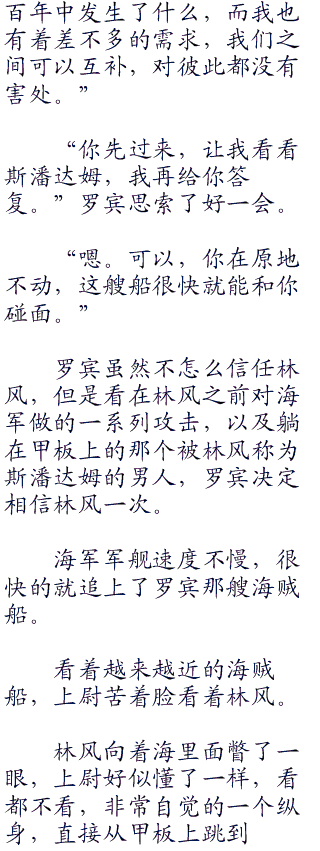 百年中发生了什么，而我也
有着差不多的需求，我们之
间可以互补，对彼此都没有
害处。”
“你先过来，让我看看
斯潘达姆，我再给你答
复。”罗宾思索了好一会。
“嗯。可以，你在原地
不动，这艘船很快就能和你
碰面。”
罗宾虽然不怎么信任林
风，但是看在林风之前对海
军做的一系列攻击，以及躺
在甲板上的那个被林风称为
斯潘达姆的男人，罗宾决定
相信林风一次。
海军军舰速度不慢，很
快的就追上了罗宾那艘海贼
船。
看着越来越近的海贼
船，上尉苦着脸看着林风。
林风向着海里面瞥了一
眼，上尉好似懂了一样，看
都不看，非常自觉的一个纵
身，直接从甲板上跳到